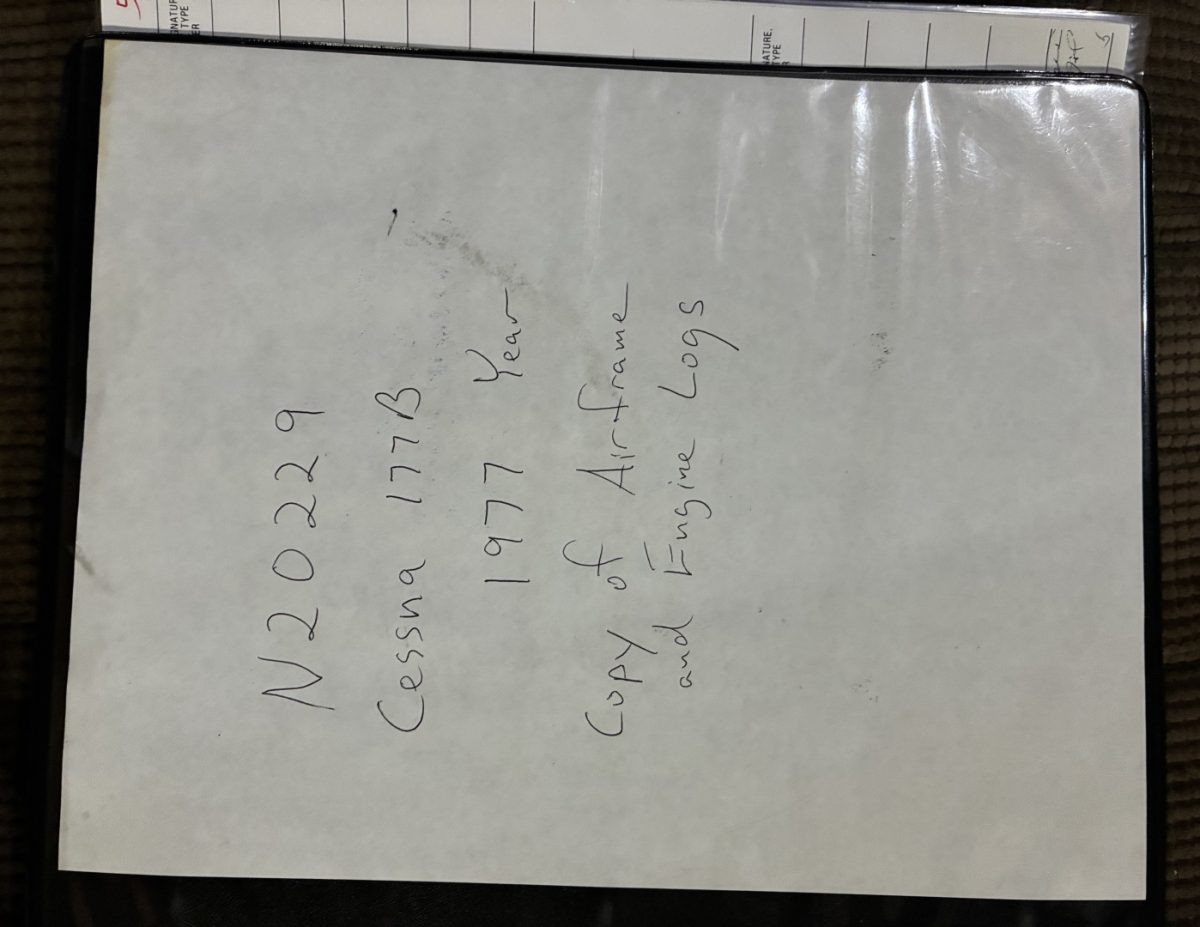 N20229
Cessna 177B
1977 Year
Copy of Airframe
and Engine Logs
NATURE,
TYPE